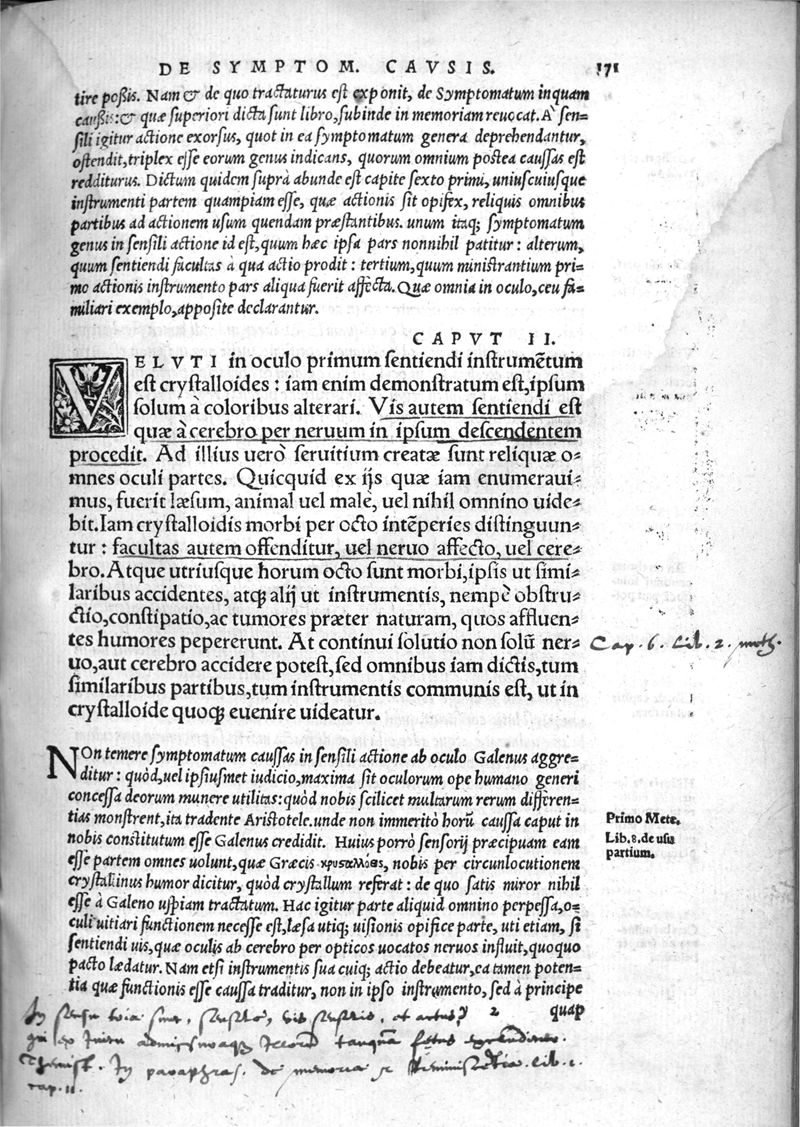 DE SYMPTOM. CAVSIS. 171
tire poßis. Nam & de quo tractaturus est exponit, de Symptomatum inquam
caußis:& quæ superiori dicta sunt libro, subinde in memoriam reuocat. A sen-
sili igitur actione exorsus, quot in ea symptomatum genera deprehendantur,
ostendit, triplex esse eorum genus indicans, quorum omnium postea caussas est
redditurus. Dictum quidem suprà abunde est capite sexto primi, uniuscuiusque
instrumenti partem quampiam esse, quæ actionis sit opifex, reliquis omnibus
partibus ad actionem usum quendam præstantibus. unum itaq; symptomatum
genus in sensili actione id est, quum hæc ipsa pars nonnihil patitur: alterum,
quum sentiendi facultas à qua actio prodit: tertium, quum ministrantium pri-
mo actionis instrumento pars aliqua fuerit affecta. Quæ omnia in oculo, ceu fa-
miliari exemplo, apposite declarantur.
CAPVT II.
VELVTI in oculo primum sentiendi instrumẽtum
est crystalloides: iam enim demonstratum est, ipsum
solum à coloribus alterari. Vis autem sentiendi est
quæ à cerebro per neruum in ipsum descendentem
procedit. Ad illius uerò seruitium creatæ sunt reliquæ o-
mnes oculi partes. Quicquid ex ijs quæ iam enumeraui-
mus, fuerit læsum, animal uel malè, uel nihil omnino uide-
bit. Iam crystalloidis morbi per octo intẽperies distinguun-
tur: facultas autem offenditur, uel neruo affecto, uel cere-
bro. Atque utriusque horum octo sunt morbi, ipsis ut simi-
laribus accidentes, atq; alij ut instrumentis, nempè obstru-
ctio, constipatio, ac tumores præter naturam, quos affluen-
tes humores pepererunt. At continui solutio non solũ ner-
uo, aut cerebro accidere potest, sed omnibus iam dictis, tum
similaribus partibus, tum instrumentis communis est, ut in
crystalloide quoq; euenire uideatur.
Cap. 6. Lib. 2. meth.
NOn temere symptomatum caussas in sensili actione ab oculo Galenus aggre-
ditur: quòd, uel ipsiusmet iudicio, maxima sit oculorum ope humano generi
concessa deorum munere utilitas: quòd nobis scilicet multarum rerum differen-
tias monstrent, ita tradente Aristotele. unde non immeritò horũ caussa caput in
nobis constitutum esse Galenus credidit. Huius porrò sensorij præcipuam eam
esse partem omnes uolunt, quæ Græcis κρυσταλλοειδὲς, nobis per circunlocutionem
crystallinus humor dicitur, quòd crystallum referat: de quo satis miror nihil
esse à Galeno uspiam tractatum. Hac igitur parte aliquid omnino perpessa, o-
culi uitiari functionem necesse est, læsa utiq; uisionis opifice parte, uti etiam, si
sentiendi uis, quæ oculis ab cerebro per opticos uocatos neruos influit, quoquo
pacto lædatur. Nam etsi instrumentis sua cuiq; actio debeatur, ea tamen poten-
tia quæ functionis esse caussa traditur, non in ipso instrumento, sed à principe
quap
Primo Mete.
Lib. 8. de usu
partium.
In sensu tria sunt, 
tanquã fetus
Themist. In paraphras. de memoria Reminiscẽtia. Lib. 
cap. 11.